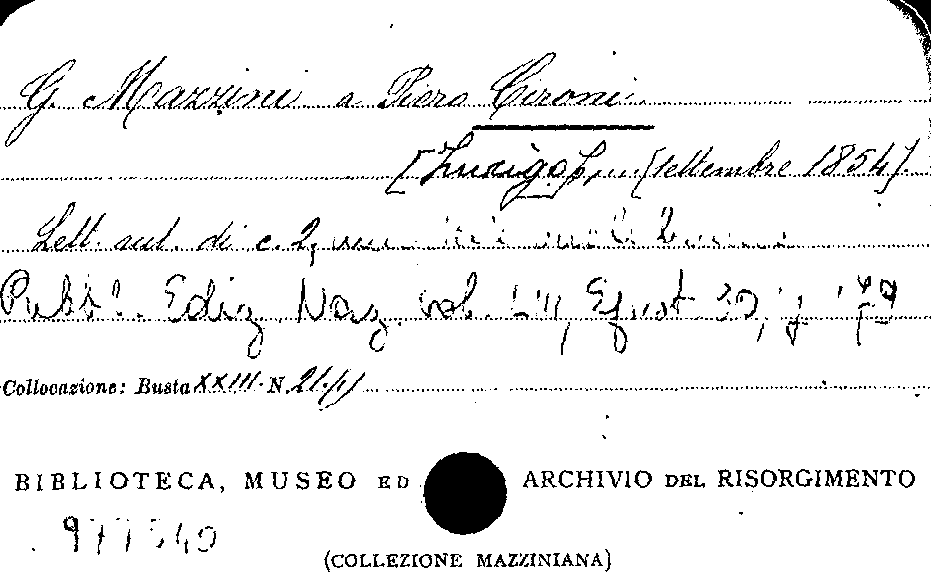 G. Mazzini a Piero Cironi
[Zurigo], [settembre 1854].
Lett. aut. di c. 2,
Pubbl. Ediz. Naz. vol. Epist. 30, p. 179
Collocazione: Busta XXIII. N. 21.
BIBLIOTECA, MUSEO ED ARCHIVIO DEL RISORGIMENTO
977540
(COLLEZIONE MAZZINIANA)